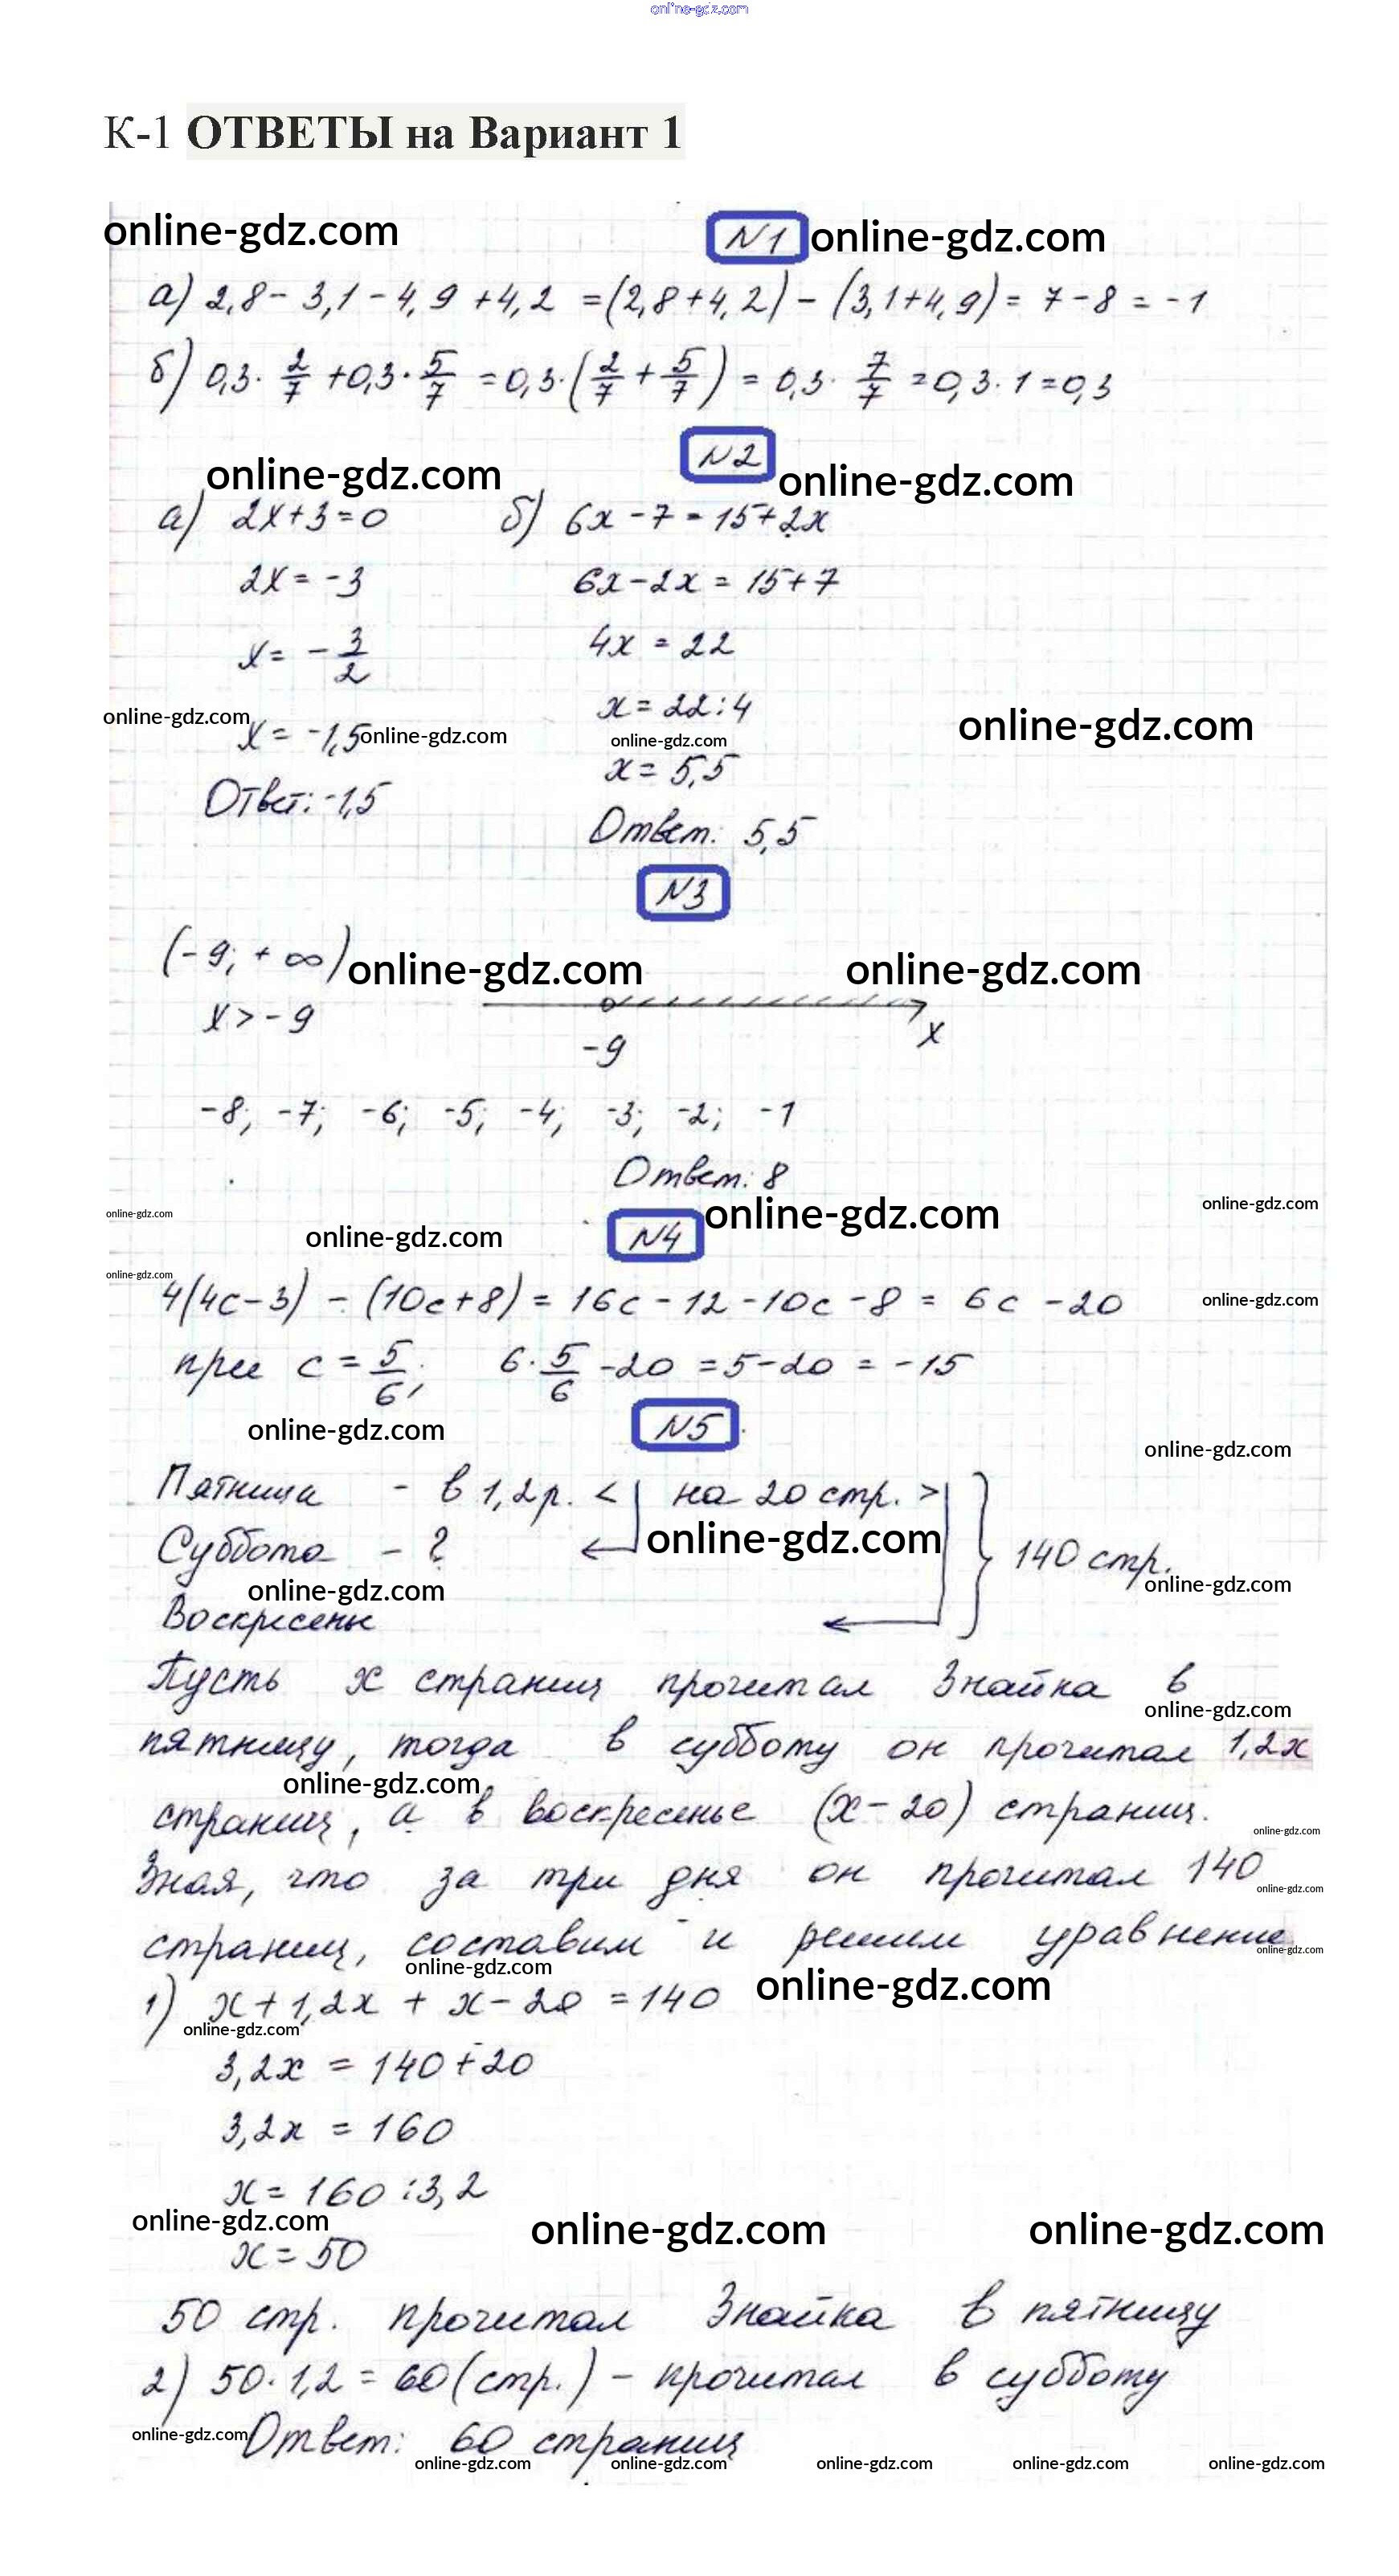 online-gdz.com
К-1 ОТВЕТЫ на Вариант 1
online-gdz.com N1 online-gdz.com
а) 2,8 - 3,1 - 4,9 + 4,2 = (2,8 + 4,2) - (3,1 + 4,9) = 7 - 8 = -1
б) 0,3 · 2/7 + 0,3 · 5/7 = 0,3 · (2/7 + 5/7) = 0,3 · 7/7 = 0,3 · 1 = 0,3
N2
online-gdz.com online-gdz.com
а) 2x + 3 = 0 б) 6x - 7 = 15 + 2x
2x = -3 6x - 2x = 15 + 7
x = -3/2 4x = 22
x = 22 : 4
online-gdz.com online-gdz.com
x = -1,5 online-gdz.com online-gdz.com
x = 5,5
Ответ: -1,5
Ответ: 5,5
N3
(-9; +∞) online-gdz.com online-gdz.com
x > -9 x
-9
-8; -7; -6; -5; -4; -3; -2; -1
Ответ: 8
online-gdz.com online-gdz.com online-gdz.com
online-gdz.com N4
online-gdz.com
4(4c - 3) - (10c + 8) = 16c - 12 - 10c - 8 = 6c - 20 online-gdz.com
при c = 5/6; 6 · 5/6 - 20 = 5 - 20 = -15
online-gdz.com N5 online-gdz.com
Пятница - в 1,2 р. < на 20 стр. >
Суббота - ? online-gdz.com 140 стр.
online-gdz.com online-gdz.com
Воскресенье
Пусть x страниц прочитал Знайка в
online-gdz.com
пятницу, тогда в субботу он прочитал 1,2x
online-gdz.com
страниц, а в воскресенье (x - 20) страниц.
online-gdz.com
Зная, что за три дня он прочитал 140
online-gdz.com
страниц, составим и решим уравнение
online-gdz.com
online-gdz.com online-gdz.com
1) x + 1,2x + x - 20 = 140
online-gdz.com
3,2x = 140 + 20
3,2x = 160
x = 160 : 3,2
online-gdz.com online-gdz.com online-gdz.com
x = 50
50 стр. прочитал Знайка в пятницу
2) 50 · 1,2 = 60 (стр.) - прочитал в субботу
online-gdz.com Ответ: 60 страниц
online-gdz.com online-gdz.com online-gdz.com online-gdz.com online-gdz.com